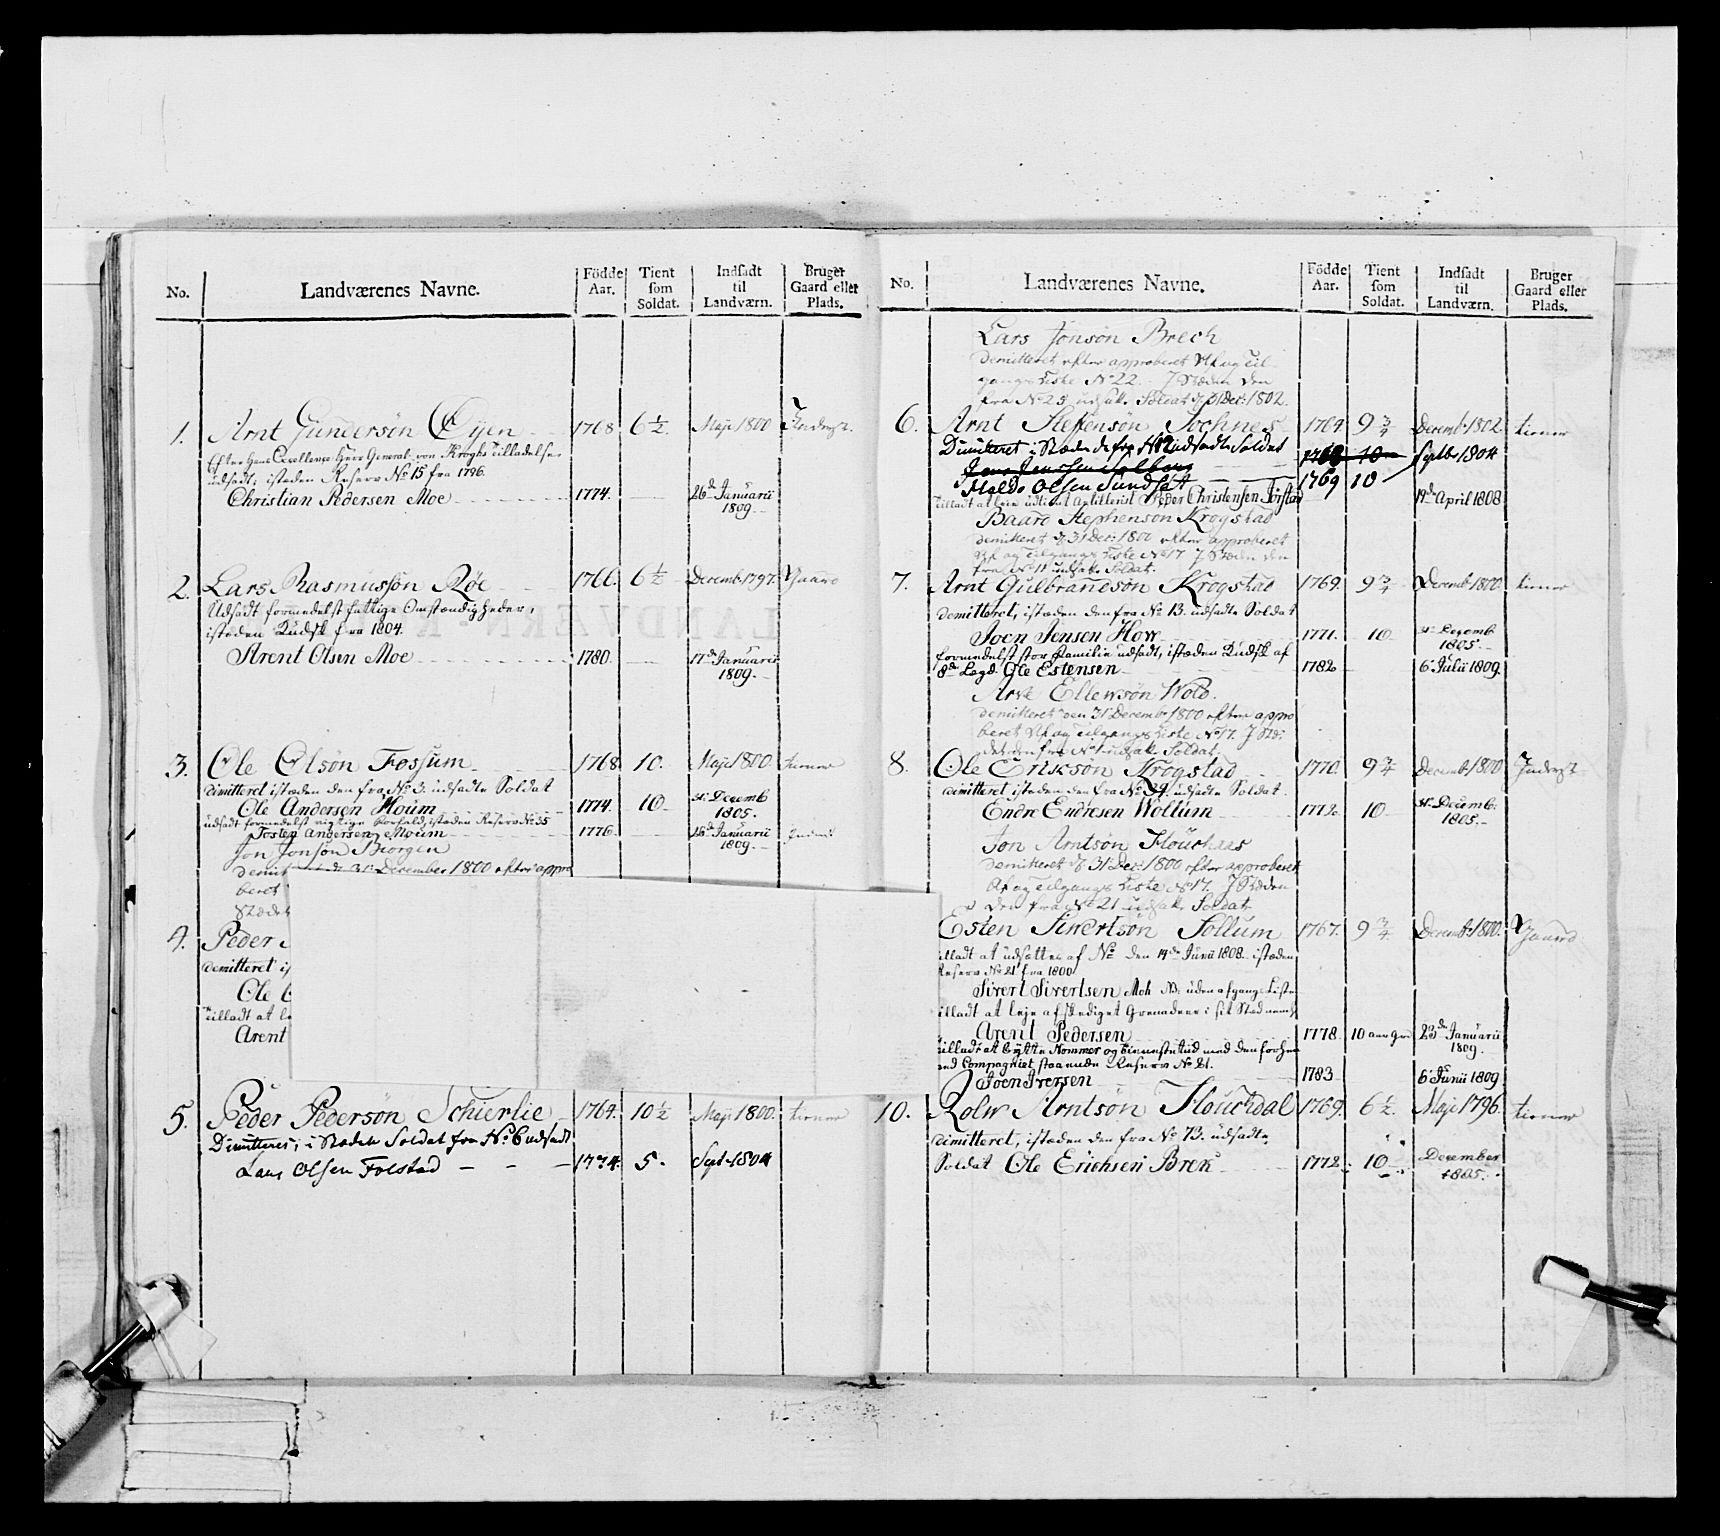 No.
Landværenes Navne.
Födde Aar.
Tient som Soldat.
Indsadt til Landværn.
Bruger Gaard eller Plads.
1. Arnt Gundersön Öyen 1768 6½ Maji 1800 Inderst
Efter Hans Excellence Herr General von Kroghs Tilladelse
udsadt, isteden Reserv No 15 fra 1796.
Christian Pedersen Moe 1774. 26de Januarii 1809.
2. Lars Rasmussön Röe 1766. 6½ Decemb. 1797. Gaard
Udsadt formedelst fattige Omstændigheder,
isteden Kudsk fra 1804.
Arent Olsen Moe 1780. 17de Januarii 1809.
3. Ole Olsön Fossum 1768 10. Maji 1800. tiener
dimitteret isteden den fra No 3. udsadte Soldat
Ole Andersen Moum 1774. 10 31te Decemb 1805.
udsadt formedelst vigtige Forfald, isteden Reserv No 35
Tosten Andersen Moum 1776. 26de Januarii 1809. Inderst
Jon Jonsön Biorgen
31te December 1800 efter appro
beret
Stædet
4. Peder
demitteret i
Ole
Tilladt at
Arent
5. Peder Pedersön Schierlie 1764. 10½ Maji 1800. tiener
Dimitteret, i Stædet Soldat fra No 6 udsadt
Lars Olsen Folstad 1774. 5. Sept. 1804
No.
Landværenes Navne.
Födde Aar.
Tient som Soldat.
Indsadt til Landværn.
Bruger Gaard eller Plads.
Lars Jonsön Brech
demitteret efter approberet Af og Til-
gangs Liste No 22. I Stæden den
fra No 25 udsatte Soldat d. 31 Dec: 1802.
6. Arnt Stefensön Sochnes 1764. 9¾ Decemb. 1802. tiener
Dimitteret i Stæden de fra udsadte Soldat
Jens Jenssen Solberg 1768 10 Septbr 1804
Haldo Olsen Sundset 1769 10
Tilladt at leie udtient Artillerist Peder Christensen 19de April 1808
Baard Stephensön Krogstad
demitteret d. 31 Dec: 1800 efter approberet
Af og Tilgangs Liste No 17 I Stæden den
fra No 11 udsatte Soldat.
7. Arnt Gulbrandsön Krogstad 1769. 9¾ Decemb. 1800. tiener
demitteret, isteden den fra No 13. udsadte Soldat
Joen Jensen How 1771. 10 31te Decemb 1805.
formedelst stor Familie udsadt, isteden Kudsk af
8de Lægd. Ole Estensen 1782 6te Julii 1809.
Arve Ellewsön Wold.
demitteret den 31te Decembr 1800 efter appro
beret Af og Tilgangs Liste No 17. I Stæ-
det den fra No 1 udsatte Soldat.
8. Ole Erichsön Krogstad 1770. 9¾ Decemb 1800 Inderst
demitteret isteden den fra No 34. udsadte Soldat.
Endre Endresen Wollum 1772. 10 31te Decemb. 1805.
Jon Arntsön Flouchaas
demitteret d. 31 Dec: 1800 efter approberet
Af og Tilgangs Liste No 17. I Stæden
den fra No 21 udsatte Soldat.
Esten Siwertsön Sollum 1767. 9¾ Decemb. 1800. Gaard
tilladt at udsættes af No den 14de Junii 1808. isteden
Reserv No 21 fra 1800
Sivert Sivertsen Moh NB: uden afgangs Liste
tilladt at leje afskediget Grenadeer i sit Sted nemlig
Arent Pedersen 1778. 10 aar 23de Januarii 1809.
tilladt at bytte Nommer og tienestetiid med den forhen
ved Compagniet staaende Reserv No 21.
Joen Iversen 1783 6te Junii 1809
10. Rolw Arntsön Flouchdal 1769. 6½. Maji 1796. tiener
demitteret, isteden den fra No 73. udsadte
Soldat Ole Erichsen Brek 1772. 10 December 1805.